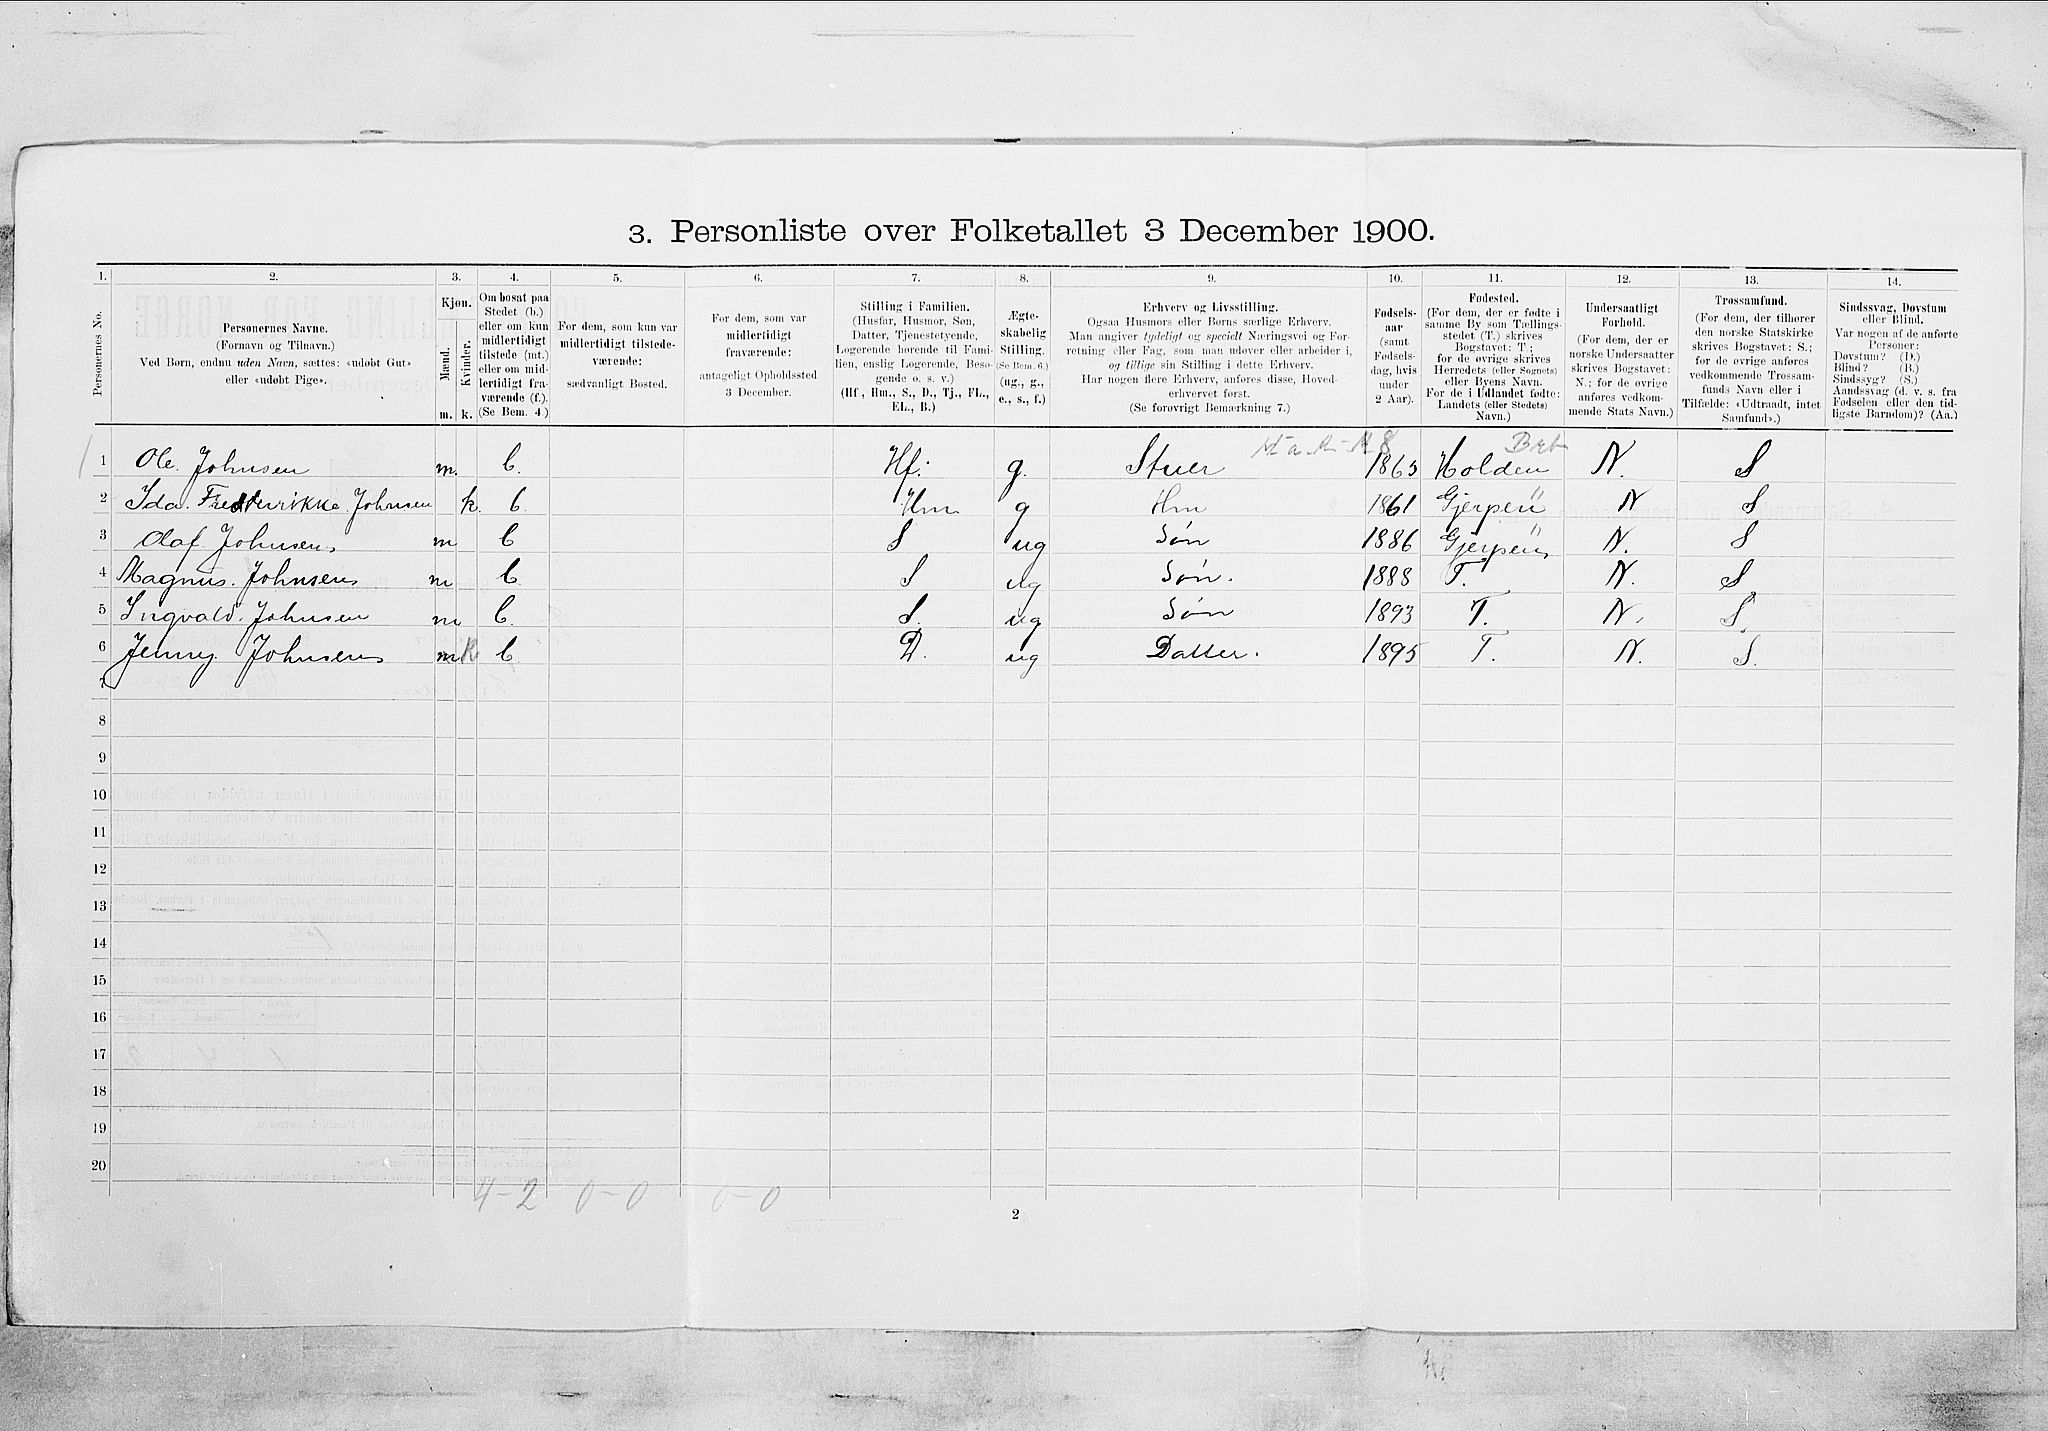 3. Personliste over Folketallet 3 December 1900.
1. 2. 3. 4. 5. 6. 7. 8. 9. 10. 11. 12. 13. 14.
Personernes No.
Personernes Navne.
(Fornavn og Tilnavn.)
Ved Børn, endnu uden Navn, sættes: «udøbt Gut»
eller «udøbt Pige».
Kjøn.
Mænd.
Kvinder.
m. k.
Om bosat paa
Stedet (b.)
eller om kun
midlertidigt
tilstede (mt.)
eller om mid-
lertidigt fra-
værende (f.).
(Se Bem. 4.)
For dem, som kun var
midlertidigt tilstede-
værende:
sædvanligt Bosted.
For dem, som var
midlertidigt
fraværende:
antageligt Opholdssted
3 December.
Stilling i Familien.
(Husfar, Husmor, Søn,
Datter, Tjenestetyende,
Logerende hørende til Fami-
lien, enslig Logerende, Besø-
gende o. s. v.)
(Hf., Hm., S., D., Tj., FL.,
EL., B.)
Ægte-
skabelig
Stilling.
(Se Bem. 6.)
(ug., g.,
e., s., f.)
Erhverv og Livsstilling.
Ogsaa Husmors eller Børns særlige Erhverv.
Man angiver tydeligt og specielt Næringsvei og For-
retning eller Fag, som man udøver eller arbeider i,
og tillige sin Stilling i dette Erhverv.
Har nogen flere Erhverv, anføres disse, Hoved-
erhvervet først.
(Se forøvrigt Bemærkning 7.)
Fødsels-
aar
(samt
Fødsels-
dag, hvis
under
2 Aar).
Fødested.
(For dem, der er fødte i
samme By som Tællings-
stedet (T.) skrives
Bogstavet: T.;
for de øvrige skrives
Herredets (eller Sognets)
eller Byens Navn.
For de i Udlandet fødte:
Landets (eller Stedets)
Navn.)
Undersaatligt
Forhold.
(For dem, der er
norske Undersaatter
skrives Bogstavet:
N.; for de øvrige
anføres vedkom-
mende Stats Navn.)
Trossamfund.
(For dem, der tilhører
den norske Statskirke
skrives Bogstavet: S.;
for de øvrige anføres
vedkommende Trossam-
funds Navn eller i
Tilfælde: «Udtraadt, intet
Samfund».)
Sindssvag, Døvstum
eller Blind.
Var nogen af de anførte
Personer:
Døvstum? (D.)
Blind? (B.)
Sindssyg? (S.)
Aandssvag (d. v. s. fra
Fødselen eller den tid-
ligste Barndom)? (Aa.)
1 Ole Johnsen m. b. Hf. g. Stuer 1863 Holden N. S
2 Ida Fredterikke Johnsen k. b. Hm g Hm 1861 Gjerpen N S
3 Olaf Johnsen m b S ug Søn 1886 Gjerpen N. S
4 Magnus. Johnsen m b S ug Søn. 1888 T. N. S
5 Ingvald. Johnsen m b. S. ug Søn 1893 T. N. S.
6 Jenny Johnsen m k b D. ug Datter. 1895 T. N. S.
7
8
9
10
11
12
13
14
15
16
17
18
19
20
4-2 0-0 0-0
2